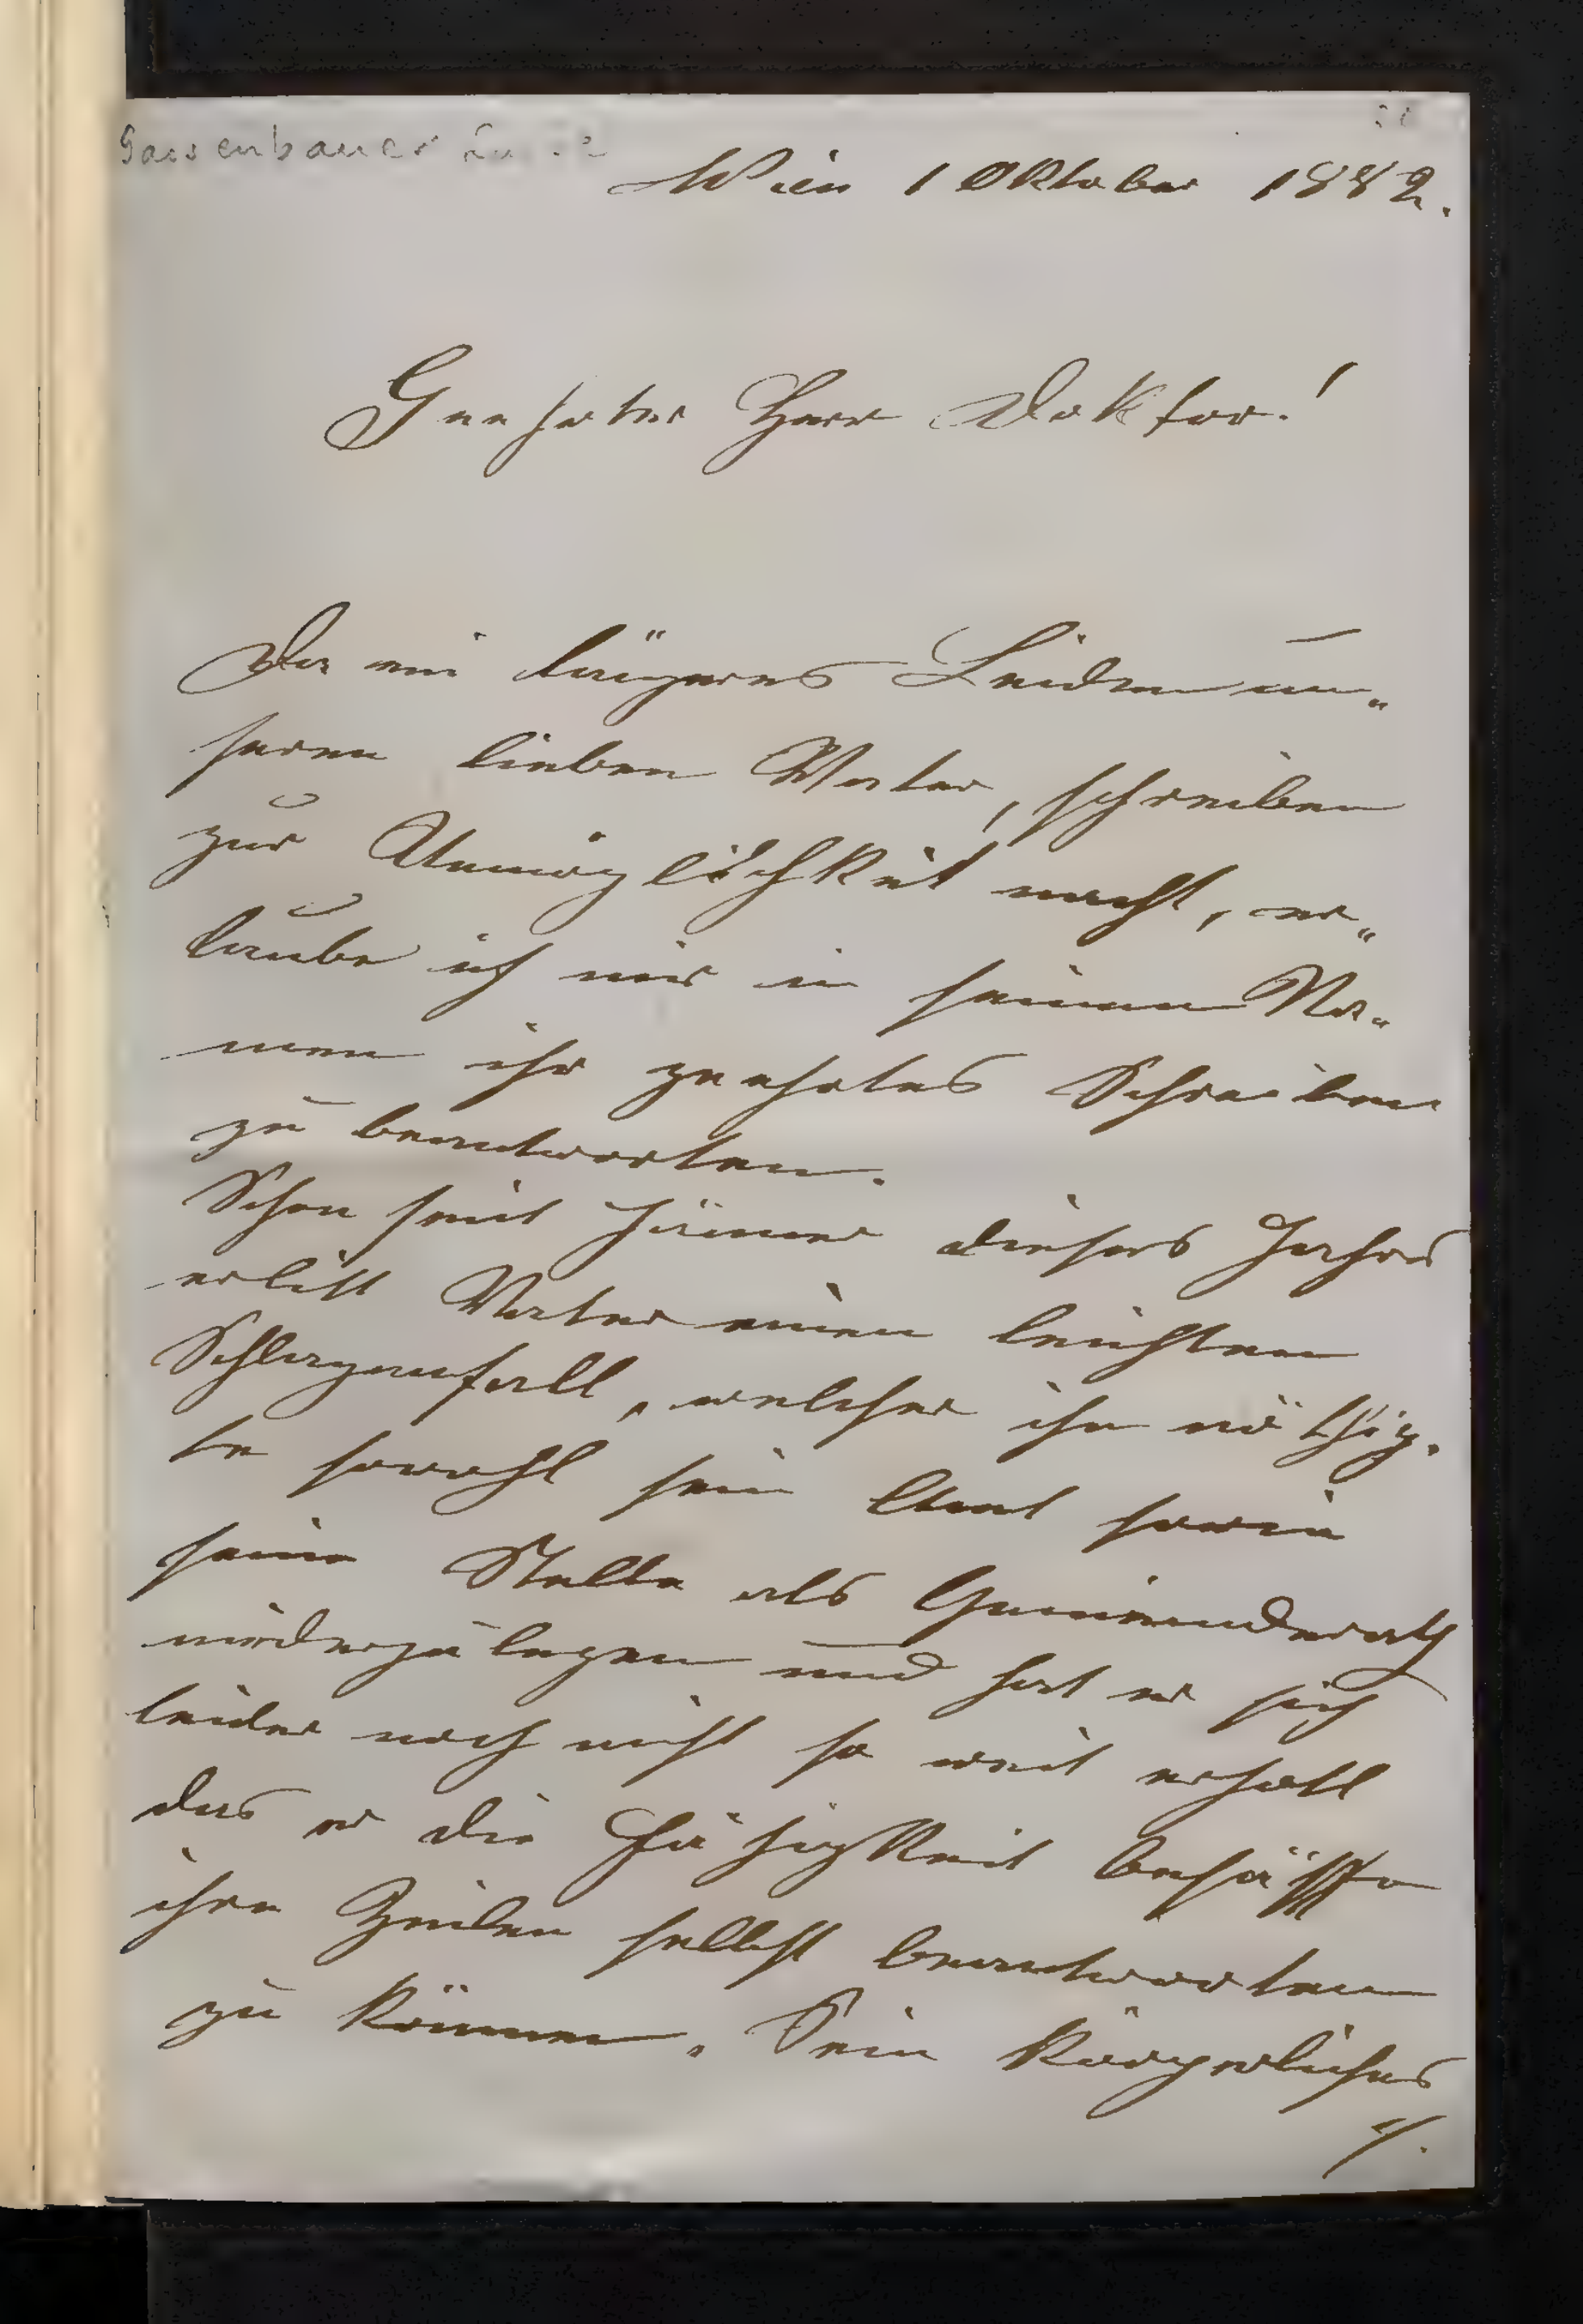 Gassenbauer
Wien 1 Oktober 1882.
Geehrter Herr Doktor!
Da ein längeres Leiden un„
seren lieben Vater, schreiben
zur Unmöglichkeit macht, er„
laube ich mir in seinem Na„
men ihr geehrtes Schreiben
zu beantworten.
Schon seit Jänner dieses Jahres
erlitt Vater einen leichten
Schlaganfall, welcher ihn nöthig„
te sowohl sein Amt sowie
seine Stelle als Gemeinderath
niederzulegen und hat er sich
leider noch nicht so weit erholt
das er die Fähigkeit besäße
ihre Zeilen selbst beantworten
zu können. Sein körperliches
./.